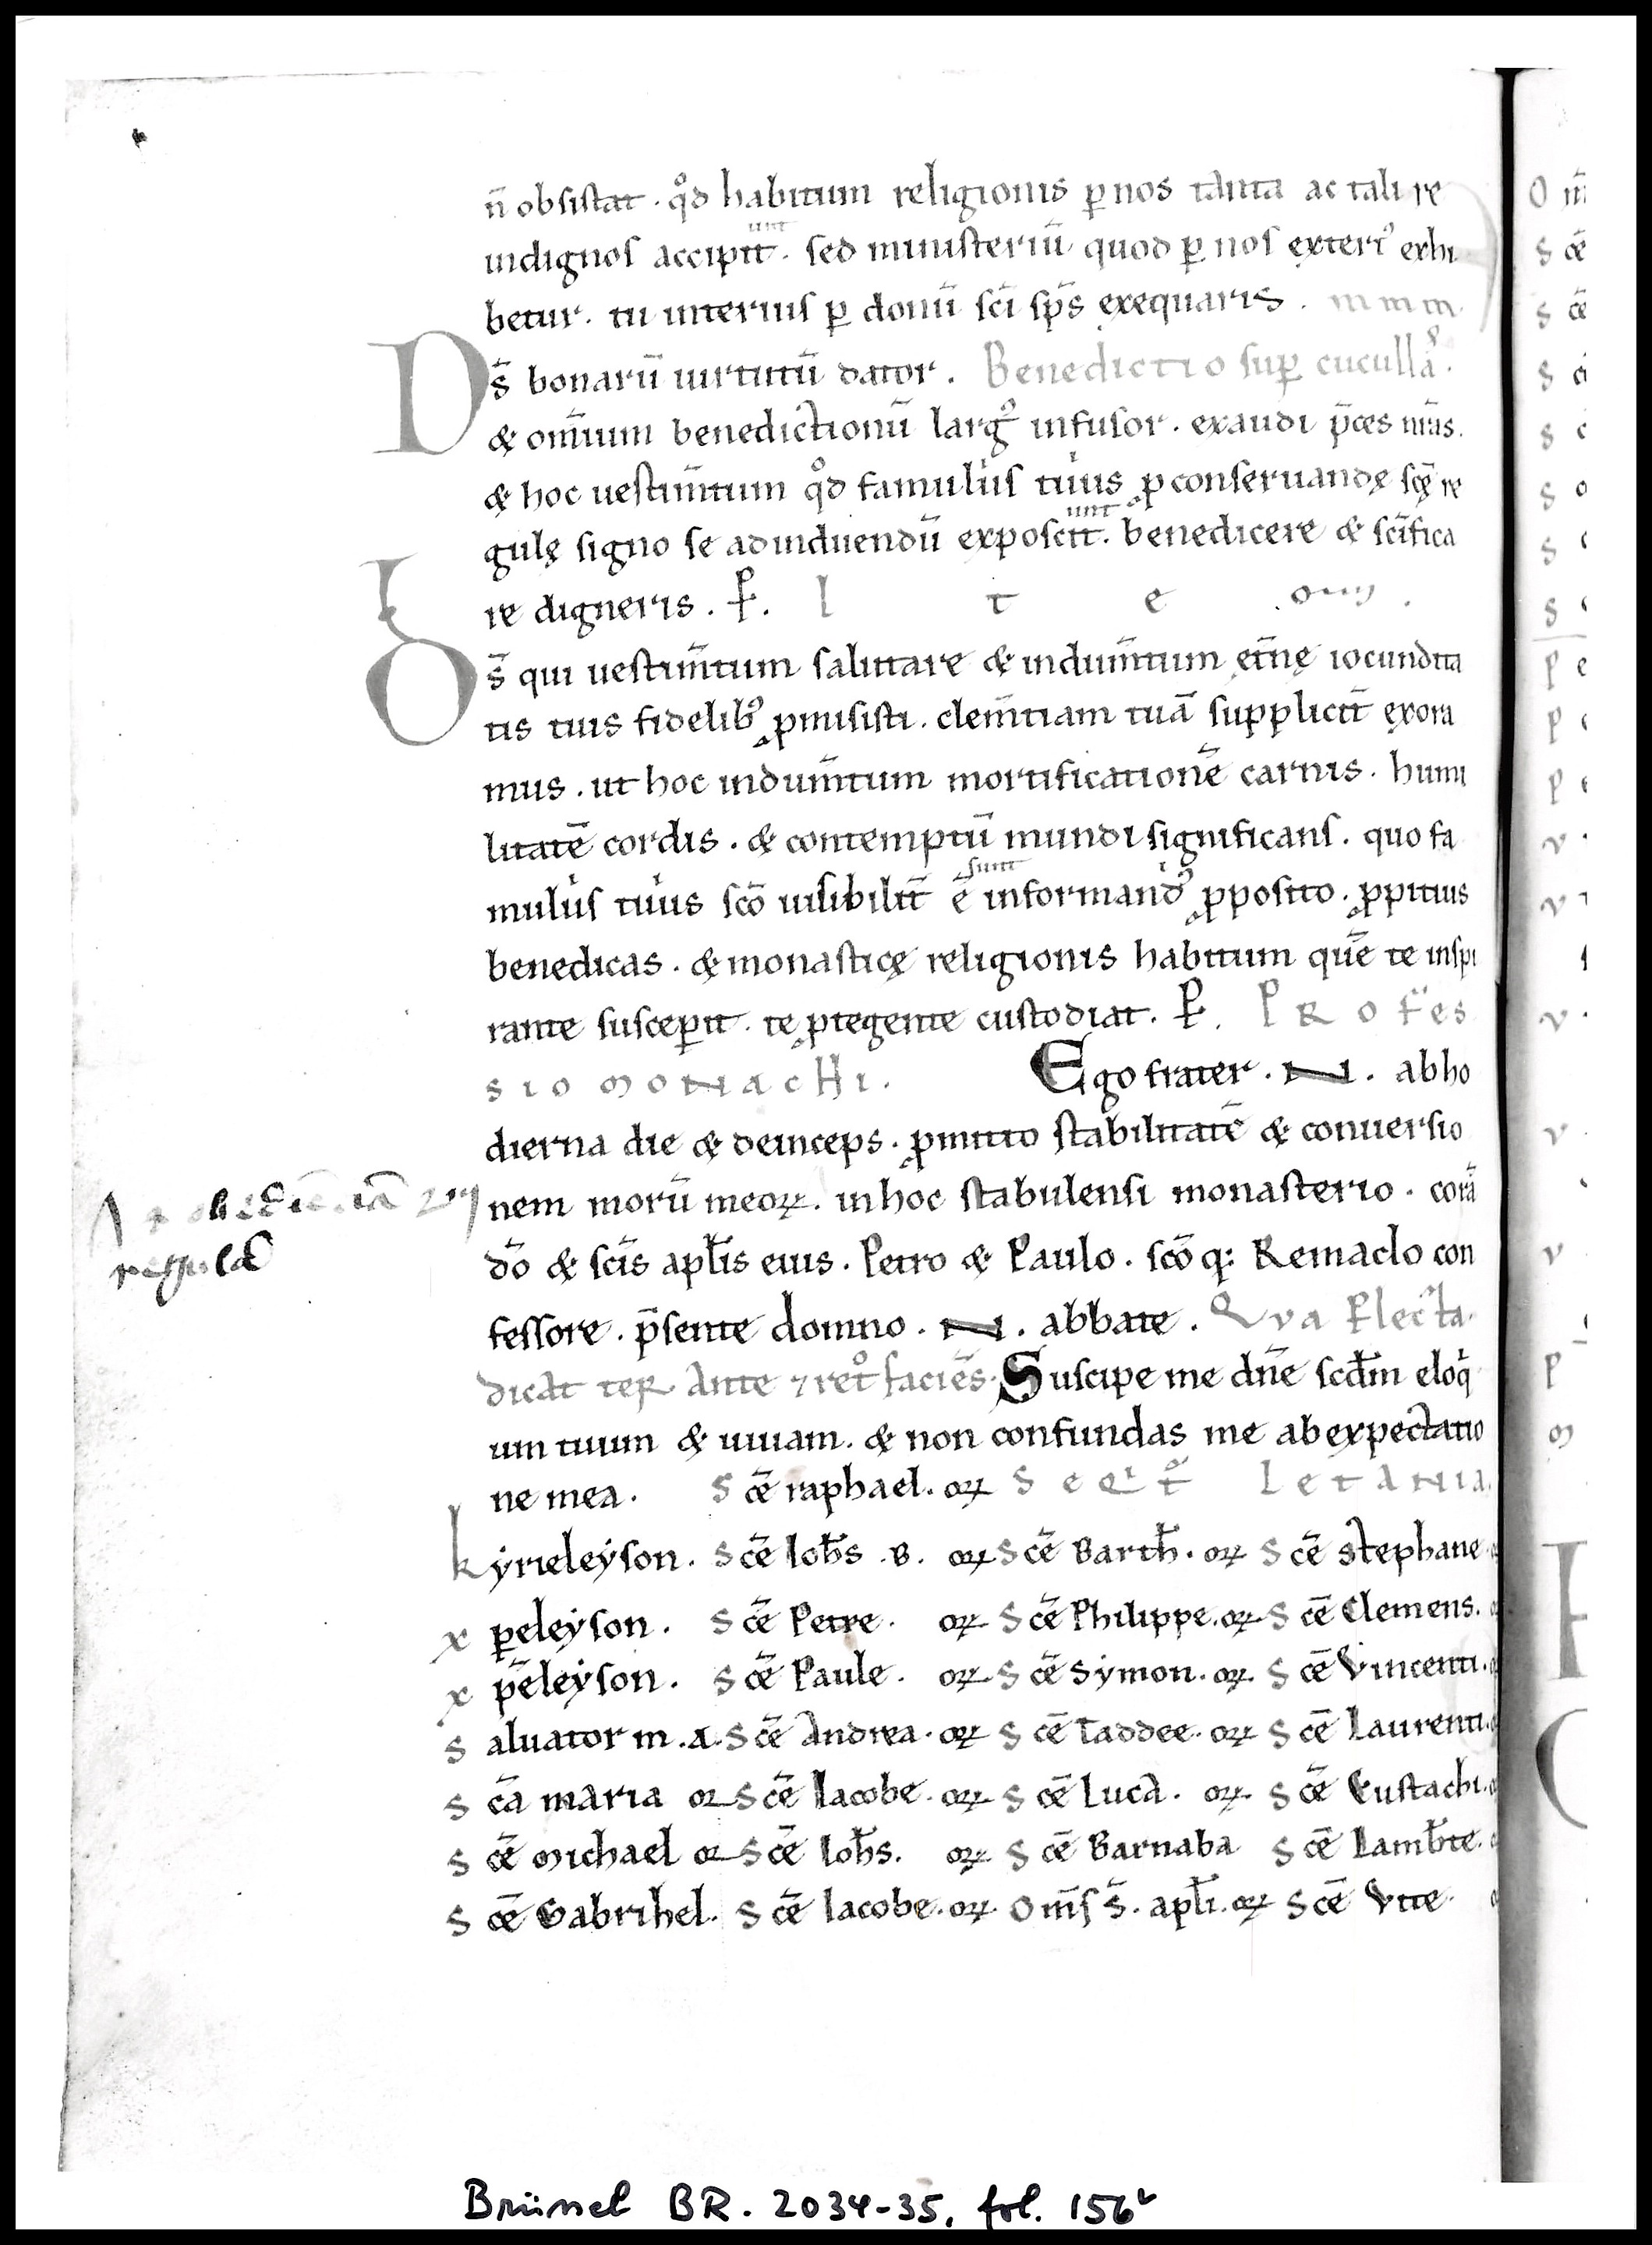 n̄ obsistat . qͦd habitum religionis ꝑ nos tanta ac tali re
unt
indignos accipit̄ . sed ministeriū quod ꝑ nos exteriꝰ exhi
betur . tu interius ꝑ donū sc̄i sp̄s exequaris .
Ds̄ bonarū uirtutū dator . Benedictio suꝑ cucullā .
& om̄ium benedictionū largꝰ infusor . exaudi p̄ces nr̄as .
& hoc uestim̄tum qͦd famulus tuus ꝓ conseruandę scę̄ re
unt
gulę signo se ad induendū exposcit̄ . benedicere & sc̄ifica
re digneris . P̵ . l t e
Ds̄ qui uestim̄tum salutare & indum̄tum ęt̄nę iocundita
tis tuis fidelibꝰ ꝓmisisti . clem̄tiam tuā supplicit̄ exora
mus . ut hoc indum̄tum mortificationē carnis . humi
litatē cordis . & contemptū mundi significans . quo fa
sunt
mulus tuus sc̄o uisibilit̄ ē informandꝰ ꝓposito . ꝓpitius
benedicas . & monasticę religionis habitum quē te inspi
rante susceꝑit . te ꝓtegente custodiat . P̵ . PRofes
sio monachi . Ego frater . N . ab ho
dierna die & deinceps . ꝓmitto stabilitatē & conuersio
nem morū meoꝝ . in hoc stabulensi monasterio . corā
& obediē.iā
regulā
dō & sc̄is apl̄is eius . Petro & Paulo . sc̄oq: Remaclo con
fessore . p̄sente domno . N . abbate . Qva Flecta
dicat ter Ante ⁊ retͦ faciēs . Suscipe me dn̄e scd̄m eloqͥ
um tuum & uiuam . & non confundas me ab expectatio
ne mea . Scē raphael . oꝝ Seqͥt̄ Letania .
kyrieleẏson . Scē Ioh̄s .B. oꝝ Scē Barth̄ . oꝝ Scē stephane
xꝑeleẏson . Scē Petre . oꝝ Scē Philippe . oꝝ Scē Clemens .
xp̄eleẏson . Scē Paule . oꝝ Scē Sẏmon . oꝝ Scē Vincenti .
saluator m . a . Scē Andrea . oꝝ Scē Taddee . oꝝ Scē Laurenti .
sc̄a maria or Scē Iacobe . oꝝ Scē Luca . oꝝ Scē Eustachi .
scē Michael or Scē Ioh̄s . oꝝ Scē Barnaba Scē Lamb̄te .
scē Gabrihel . Scē Iacobe . oꝝ Om̄s s̄ . apl̄i . oꝝ Scē Vite
Brüssel BR. 2034-35, fol. 156ᵛ